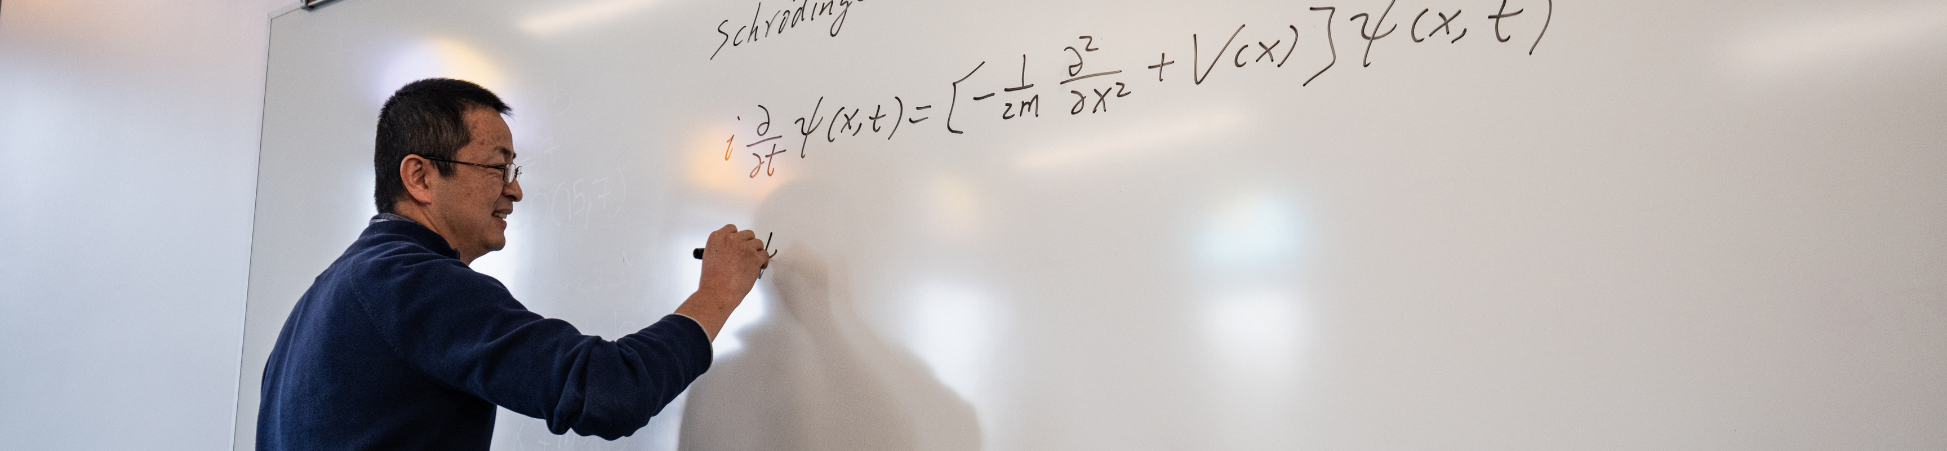 Schröding
i ∂/∂t ψ(x,t) = [-1/2m ∂²/∂x² + V(x)] ψ(x,t)
(15,7)